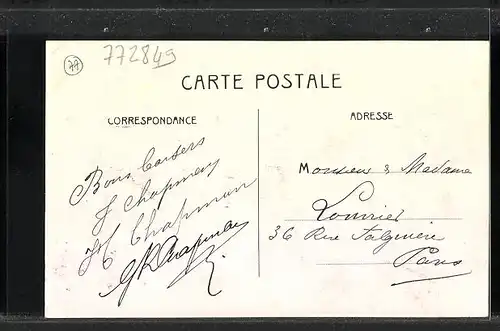 77
772849
CARTE POSTALE
CORRESPONDANCE
ADRESSE
Bons baisers
J Chapman
H Chapman
G R Chapman
Monsieur & Madame
Louvrier
36 Rue Falguière
Paris